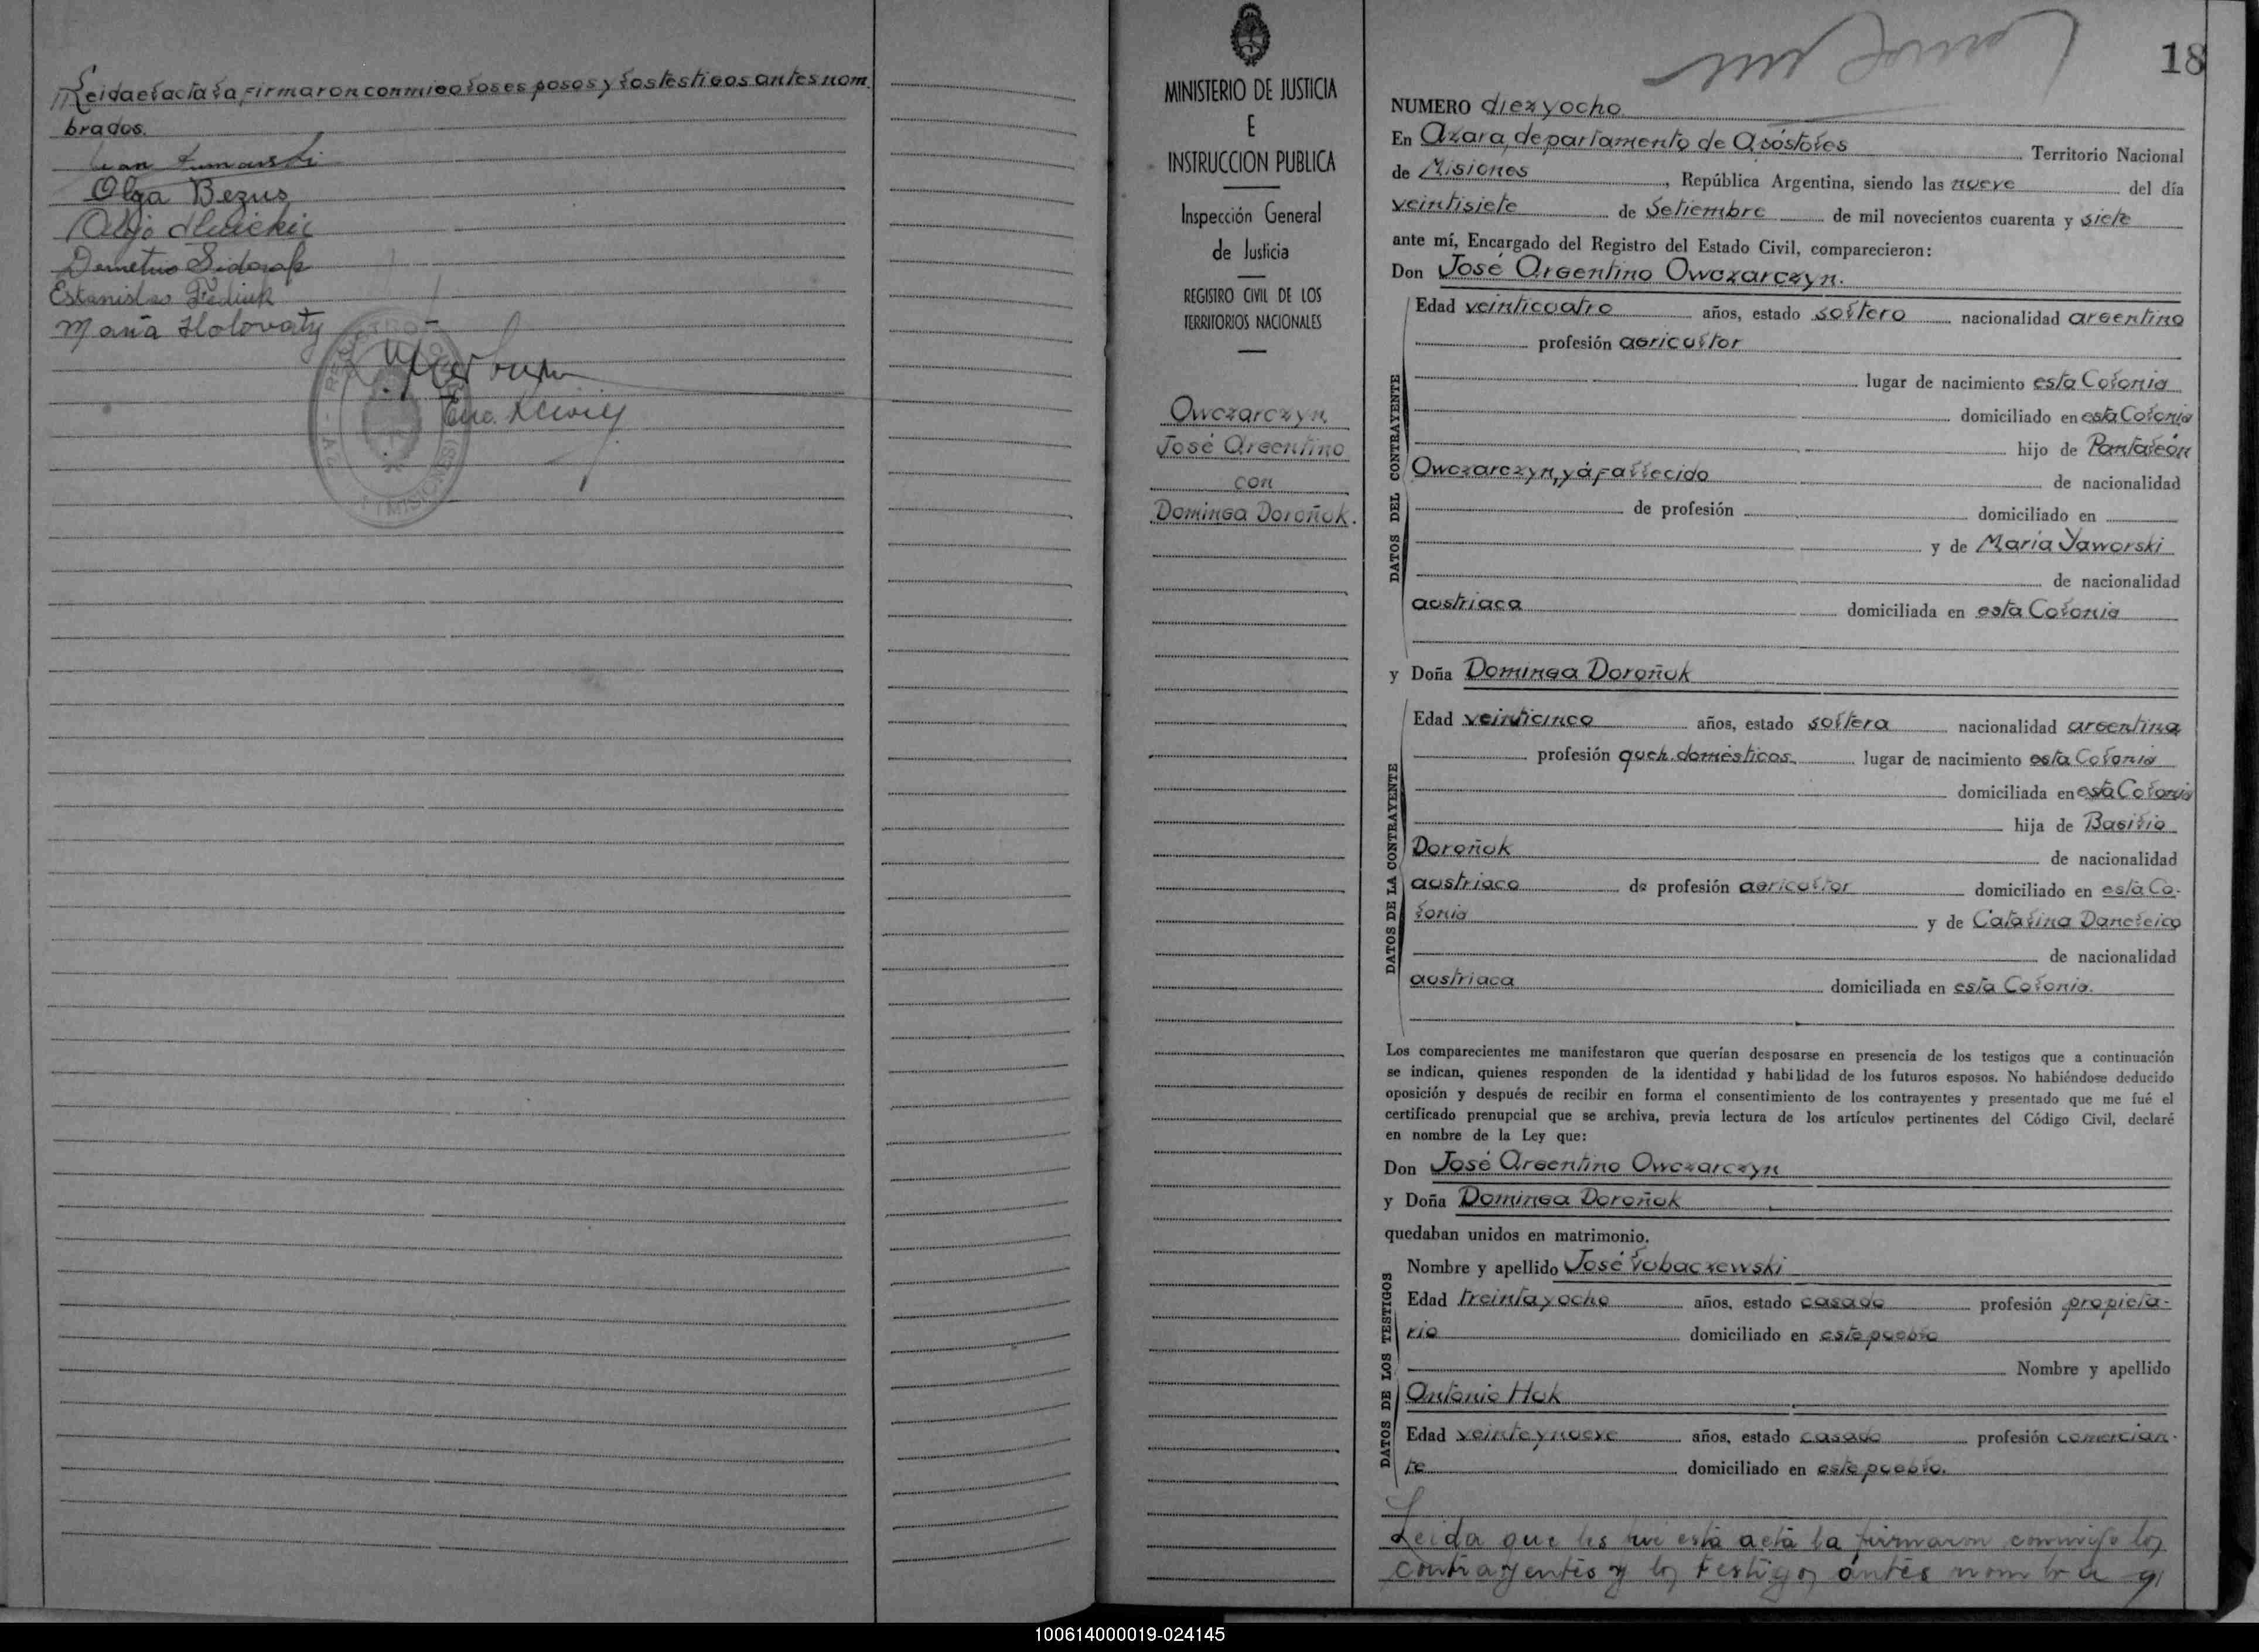 Leida el acta la firmaron conmigo los esposos y los testigos antes nom.
brados.
Olga Bezus
Demetrio Sidorak
Estanislao Fediuk
María Holovaty
Enc. R. Civil
MISIONES
MINISTERIO DE JUSTICIA
E
INSTRUCCION PUBLICA
Inspección General
de Justicia
REGISTRO CIVIL DE LOS
TERRITORIOS NACIONALES
Owczarczyn,
José Argentino
con
Dominga Doroñuk.
18
NUMERO diez y ocho
En Azara, departamento de Apóstoles Territorio Nacional
de Misiones, República Argentina, siendo las nueve del día
veintisiete de Setiembre de mil novecientos cuarenta y siete
ante mí, Encargado del Registro del Estado Civil, comparecieron:
Don José Argentino Owczarczyn.
DATOS DEL CONTRAYENTE
Edad veinticuatro años, estado soltero nacionalidad argentino
profesión agricultor
lugar de nacimiento esta Colonia
domiciliado en esta Colonia
hijo de Pantaleón
Owczarczyn, yá fallecido de nacionalidad
de profesión domiciliado en
y de María Yaworski
de nacionalidad
austriaca domiciliada en esta Colonia
y Doña Dominga Doroñuk
DATOS DE LA CONTRAYENTE
Edad veinticinco años, estado soltera nacionalidad argentina
profesión queh. domésticos. lugar de nacimiento esta Colonia
domiciliada en esta Colonia
hija de Basilio
Doroñuk de nacionalidad
austriaco de profesión agricultor domiciliado en esta Co-
lonia y de Catalina Daneleico
de nacionalidad
austriaca domiciliada en esta Colonia.
Los comparecientes me manifestaron que querían desposarse en presencia de los testigos que a continuación
se indican, quienes responden de la identidad y habilidad de los futuros esposos. No habiéndose deducido
oposición y después de recibir en forma el consentimiento de los contrayentes y presentado que me fué el
certificado prenupcial que se archiva, previa lectura de los artículos pertinentes del Código Civil, declaré
en nombre de la Ley que:
Don José Argentino Owczarczyn
y Doña Dominga Doroñuk
quedaban unidos en matrimonio.
DATOS DE LOS TESTIGOS
Nombre y apellido José Lubaczewski
Edad treinta y ocho años, estado casado profesión propieta-
rio domiciliado en este pueblo
Nombre y apellido
Antonio Huk
Edad veinte y nueve años, estado casado profesión comercian-
te domiciliado en este pueblo.
Leida que les fué esta acta la firmaron conmigo los
contrayentes y los testigos antes nombra
100614000019-024145